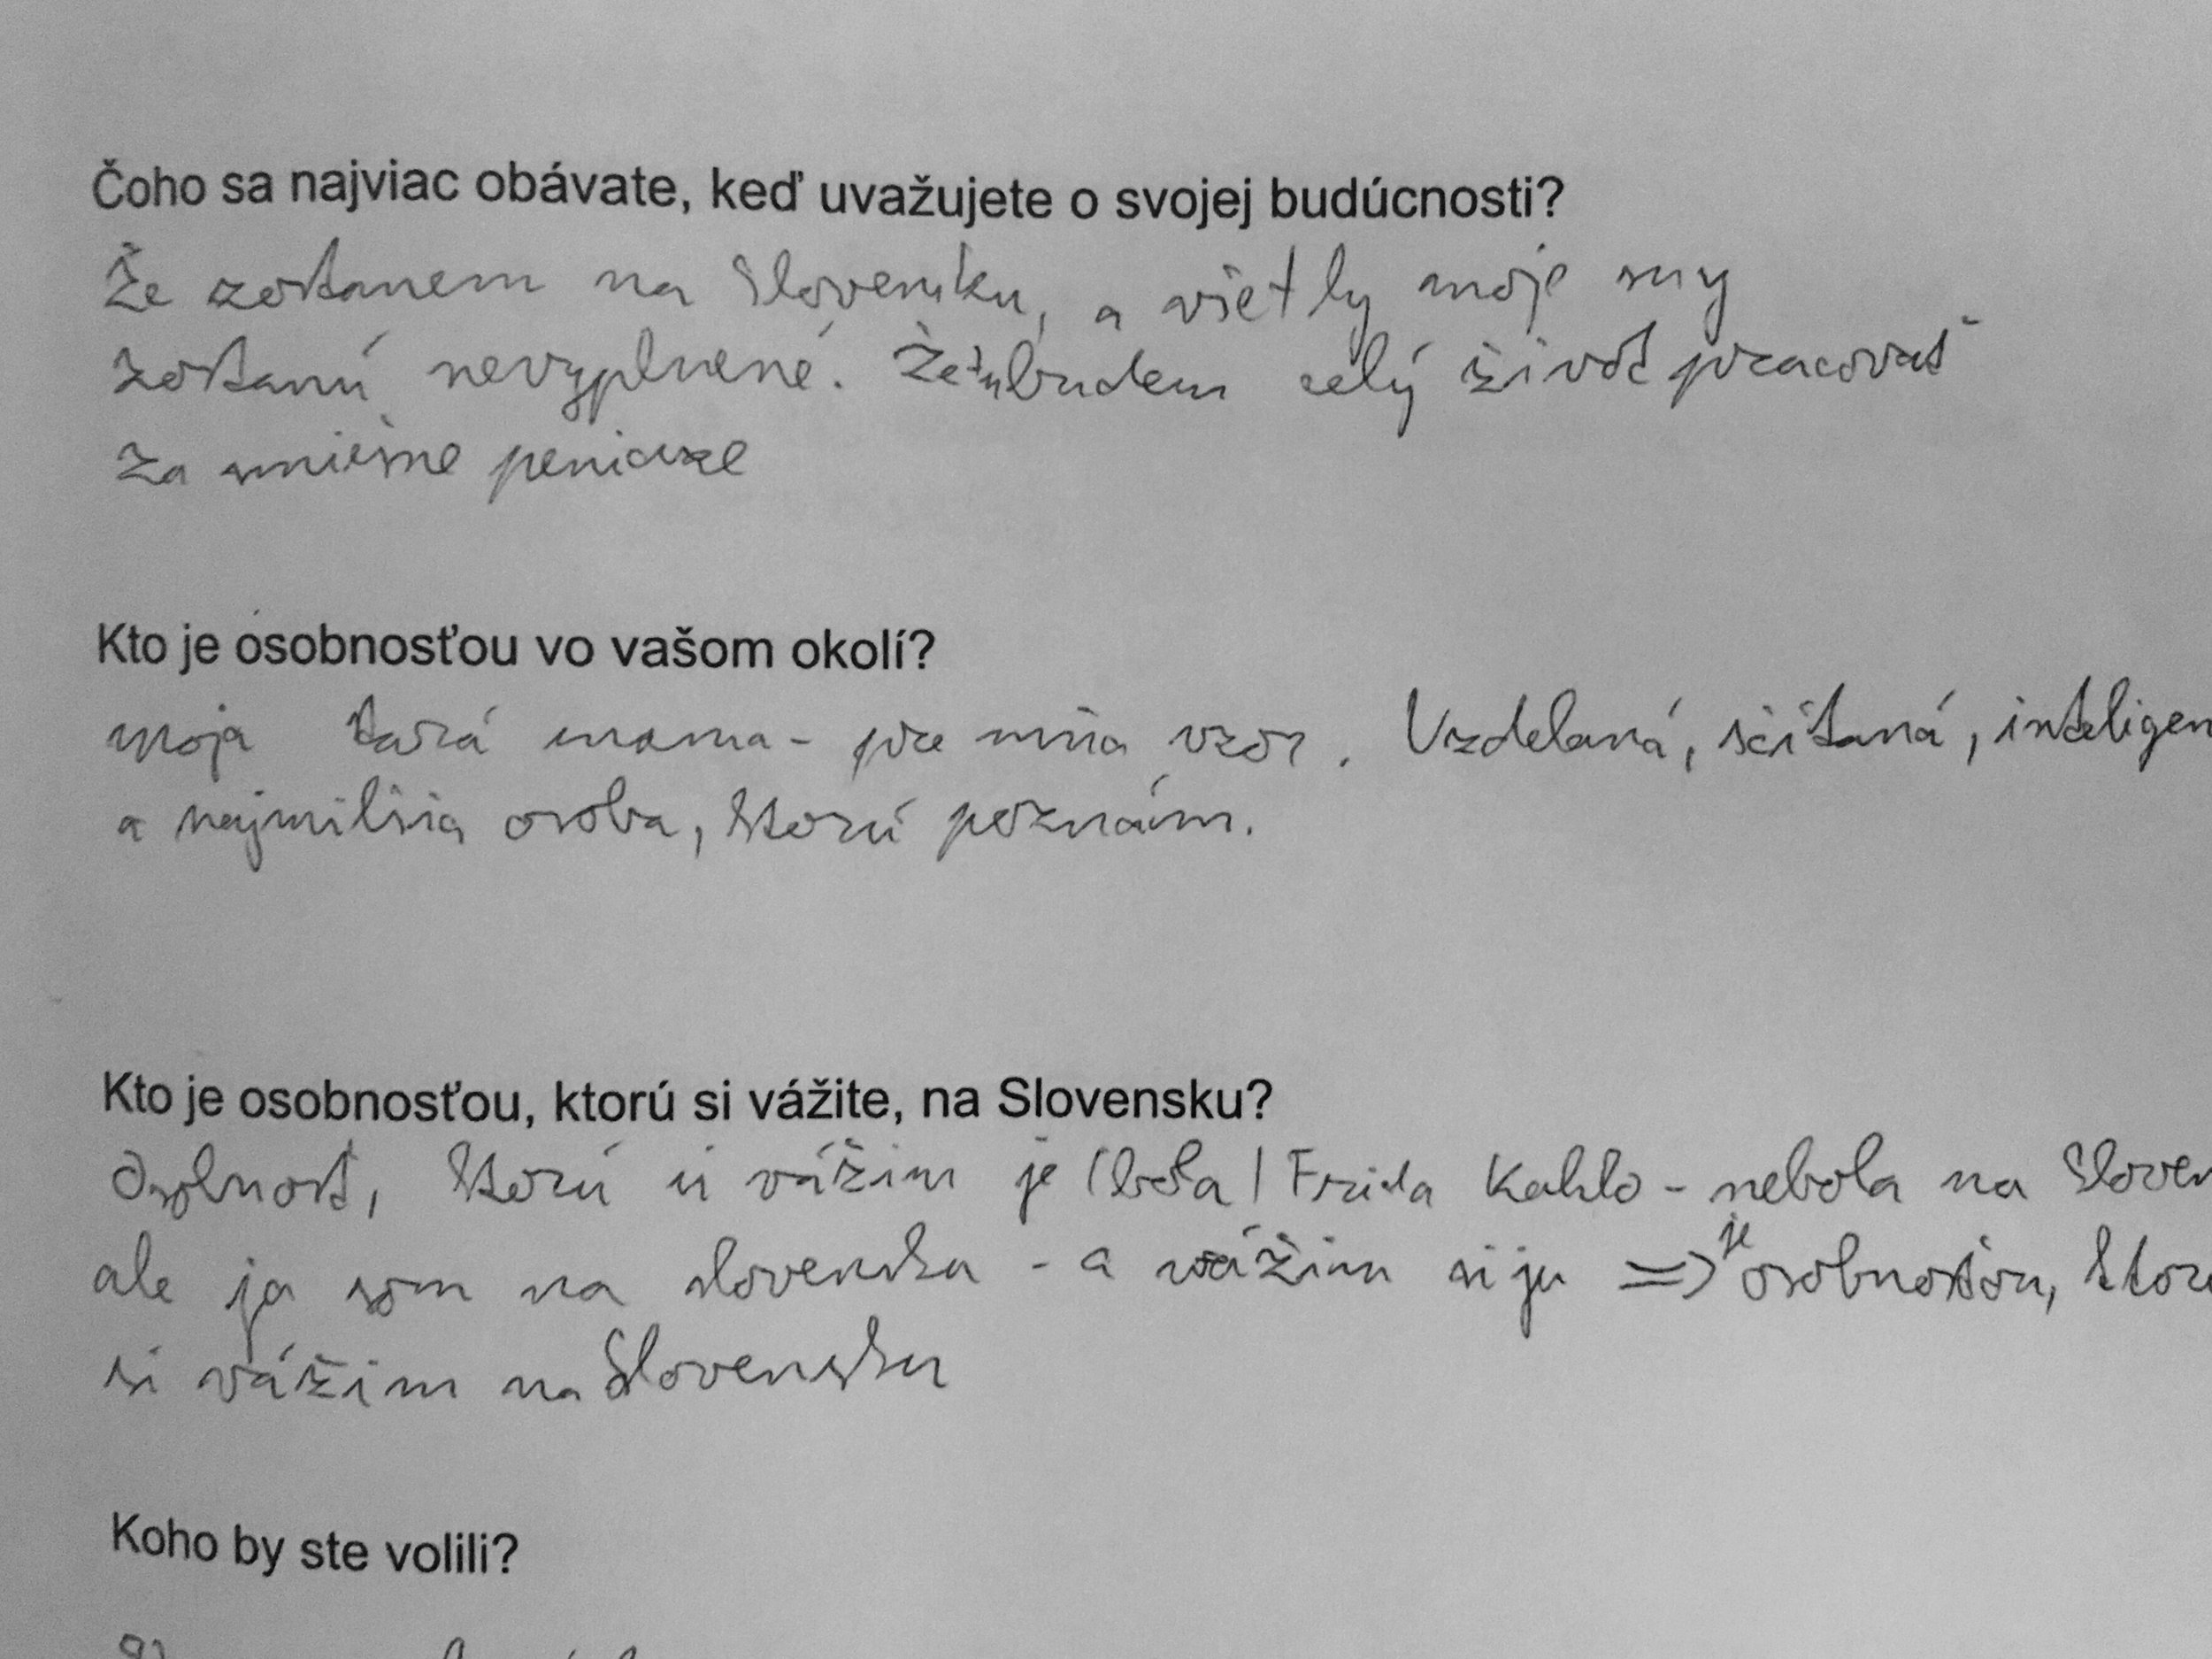 Čoho sa najviac obávate, keď uvažujete o svojej budúcnosti?
Že zostanem na Slovensku, a všetky moje sny
zostanú nevyplnené. Že tu budem celý život pracovať
za smiešne peniaze
Kto je osobnosťou vo vašom okolí?
moja stará mama - pre mňa vzor. Vzdelaná, sčítaná, inteligen
a najmilšia osoba, ktorú poznám.
Kto je osobnosťou, ktorú si vážite, na Slovensku?
Osobnosť, ktorú si vážim je (bola) Frida Kahlo - nebola na Sloven
ale ja som na slovensku - a vážim si ju => je osobnosťou, ktorú
si vážim na Slovensku
Koho by ste volili?